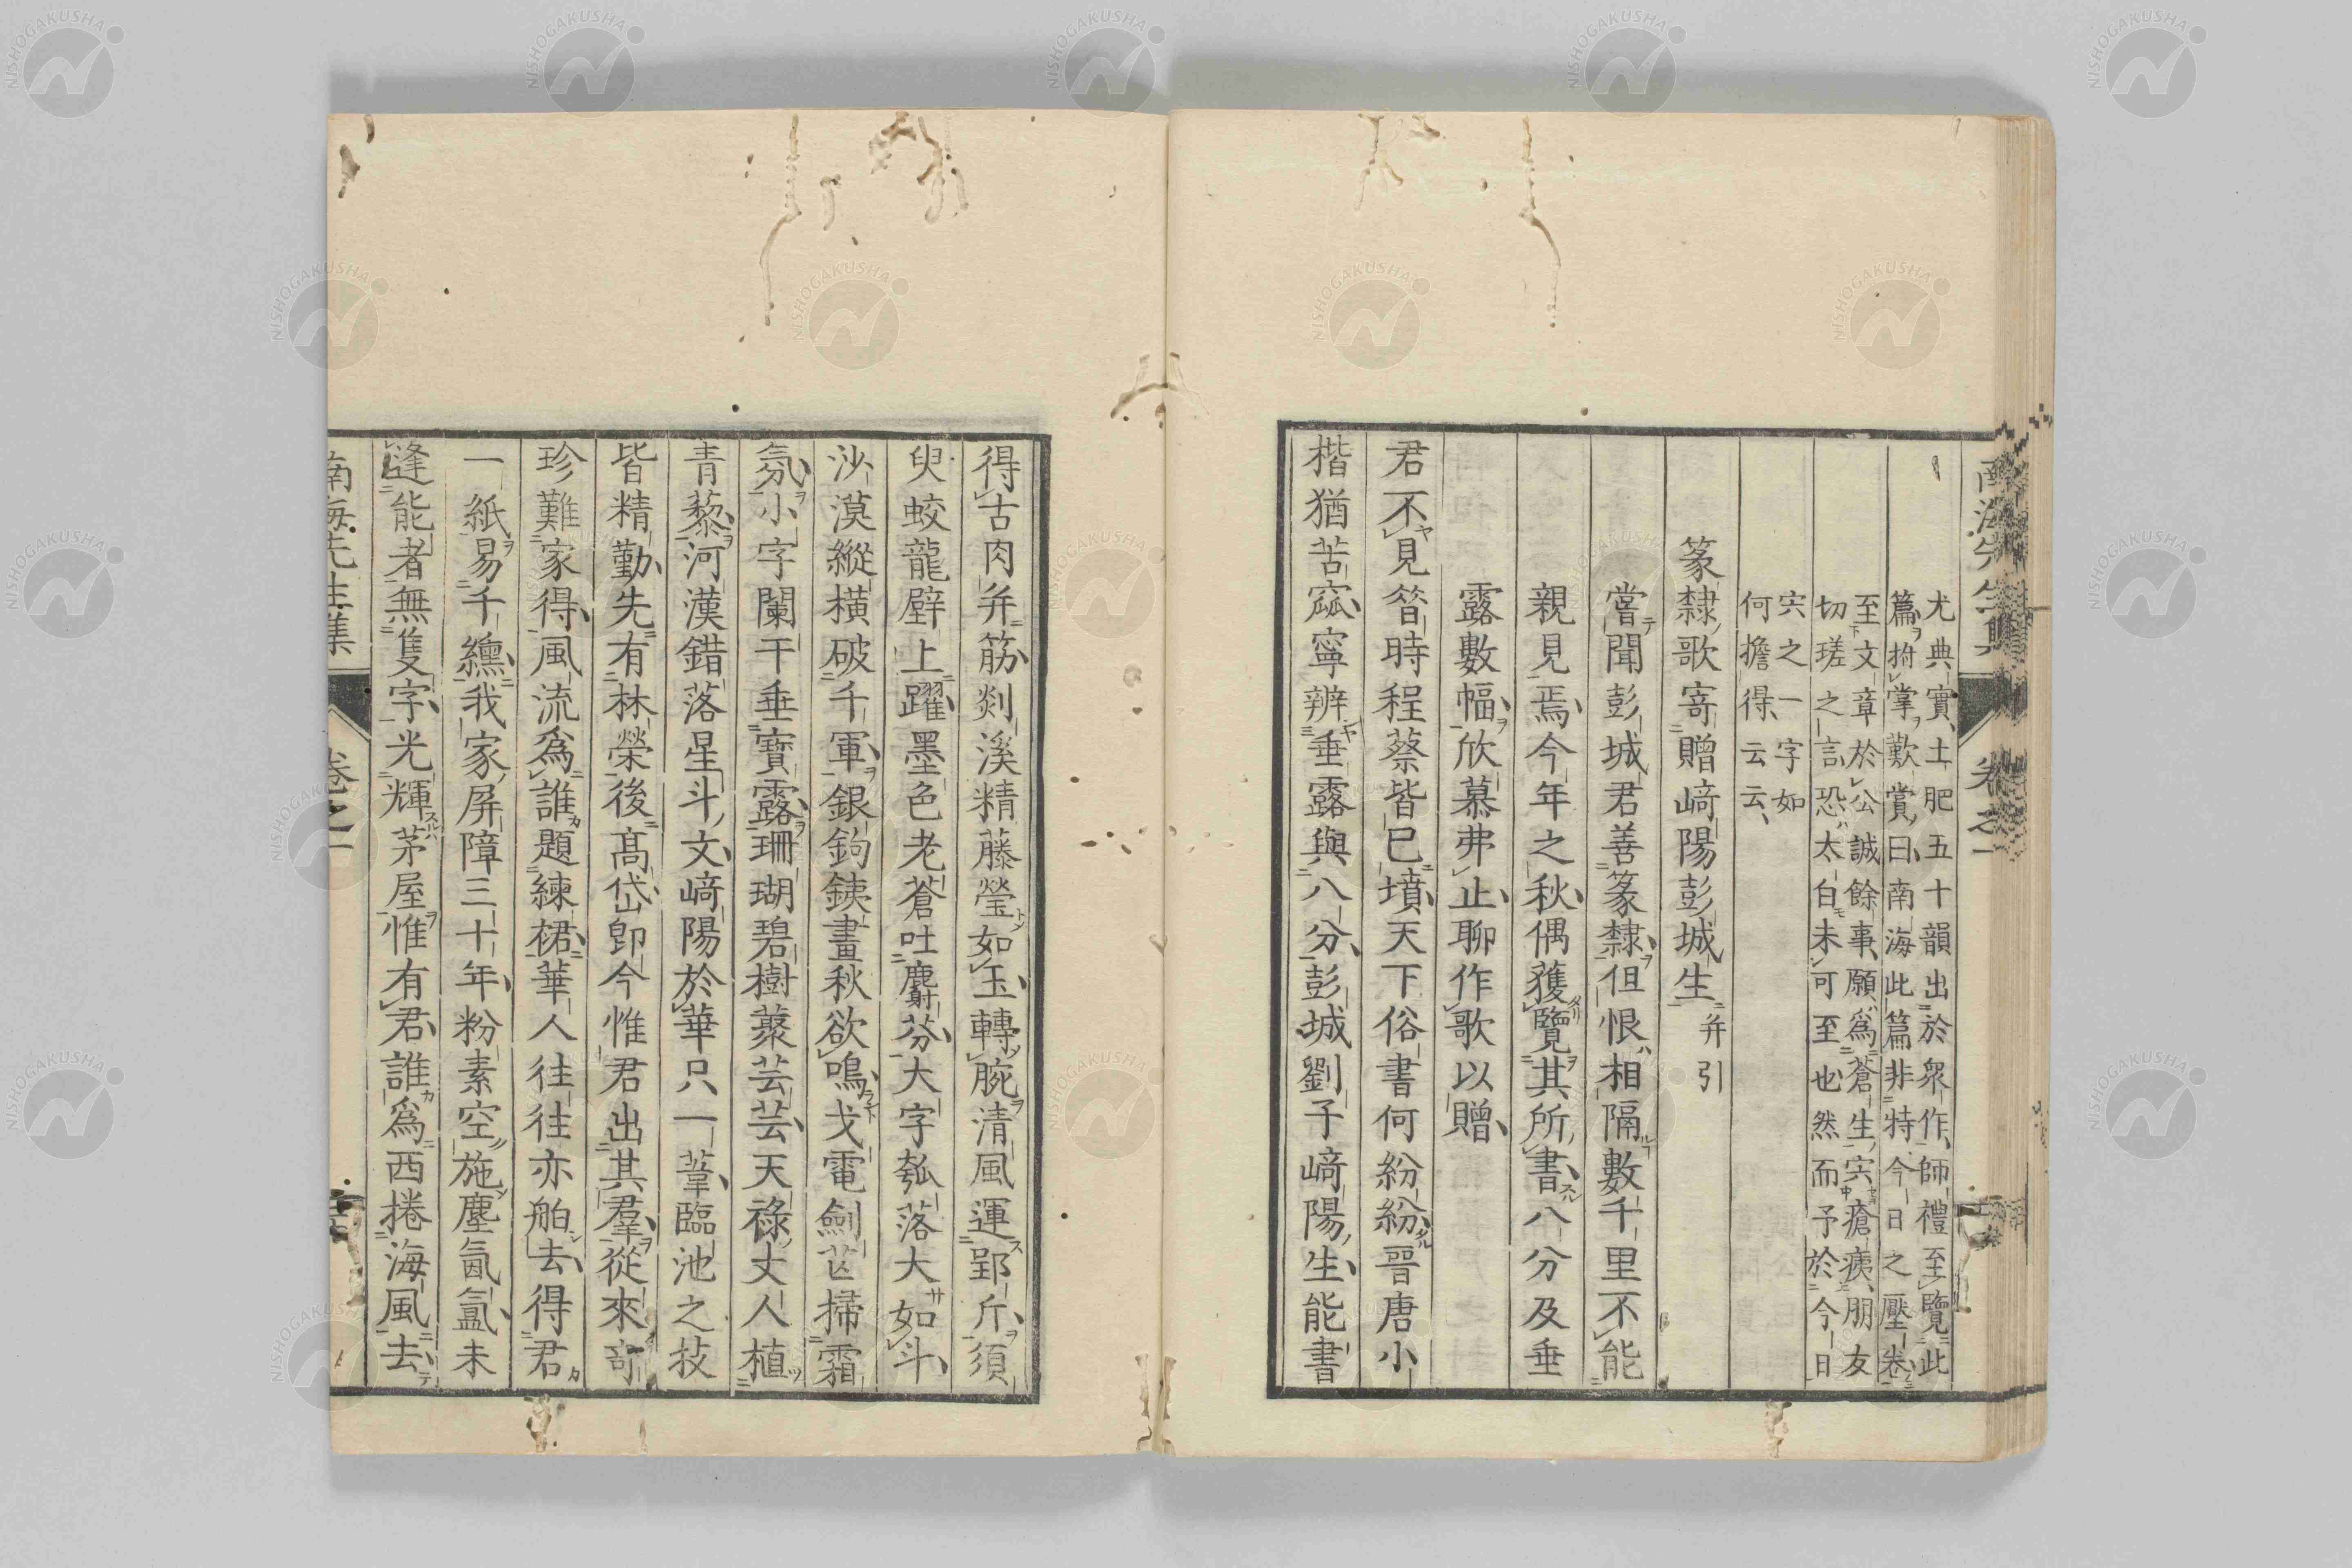 南海先生集　卷之一
尤典實土肥五十韻出於衆作師禮至覽此
篇拊掌歎賞曰南海此篇非特今日之壓卷
至文章於公誠餘事願爲蒼生宍瘡痍朋友
切瑳之言恐太白未可至也然而予於今日
宍之一字如
何擔得云云
篆隸歌寄贈﨑陽彭城生并引
嘗聞彭城君善篆隸但恨相隔數千里不能
親見焉今年之秋偶獲覽其所書八分及垂
露數幅欣慕弗止聊作歌以贈
君不見昝時程蔡皆已墳天下俗書何紛紛晉唐小
楷猶苦窳寧辨垂露與八分彭城劉子﨑陽生能書
得古肉并筋剡溪精藤瑩如玉轉腕清風運郢斤須
臾蛟龍壁上躍墨色老蒼吐麝芬大字瓠落大如斗
沙漠縱橫破千軍銀鉤鐵畫秋欲鳴戈電劍芒掃霜
氛小字闌干垂寶露珊瑚碧樹蘂芸芸天祿丈人植
青藜河漢錯落星斗文﨑陽於華只一葦臨池之技
皆精勤先有林榮後高岱卽今惟君出其羣從來奇
珍難家得風流爲誰題練裙華人往往亦舶去得君
一紙易千纁我家屏障三十年粉素空施塵氤氳未
逢能者無隻字光輝茅屋惟有君誰爲西捲海風去
南海先生集　卷之一